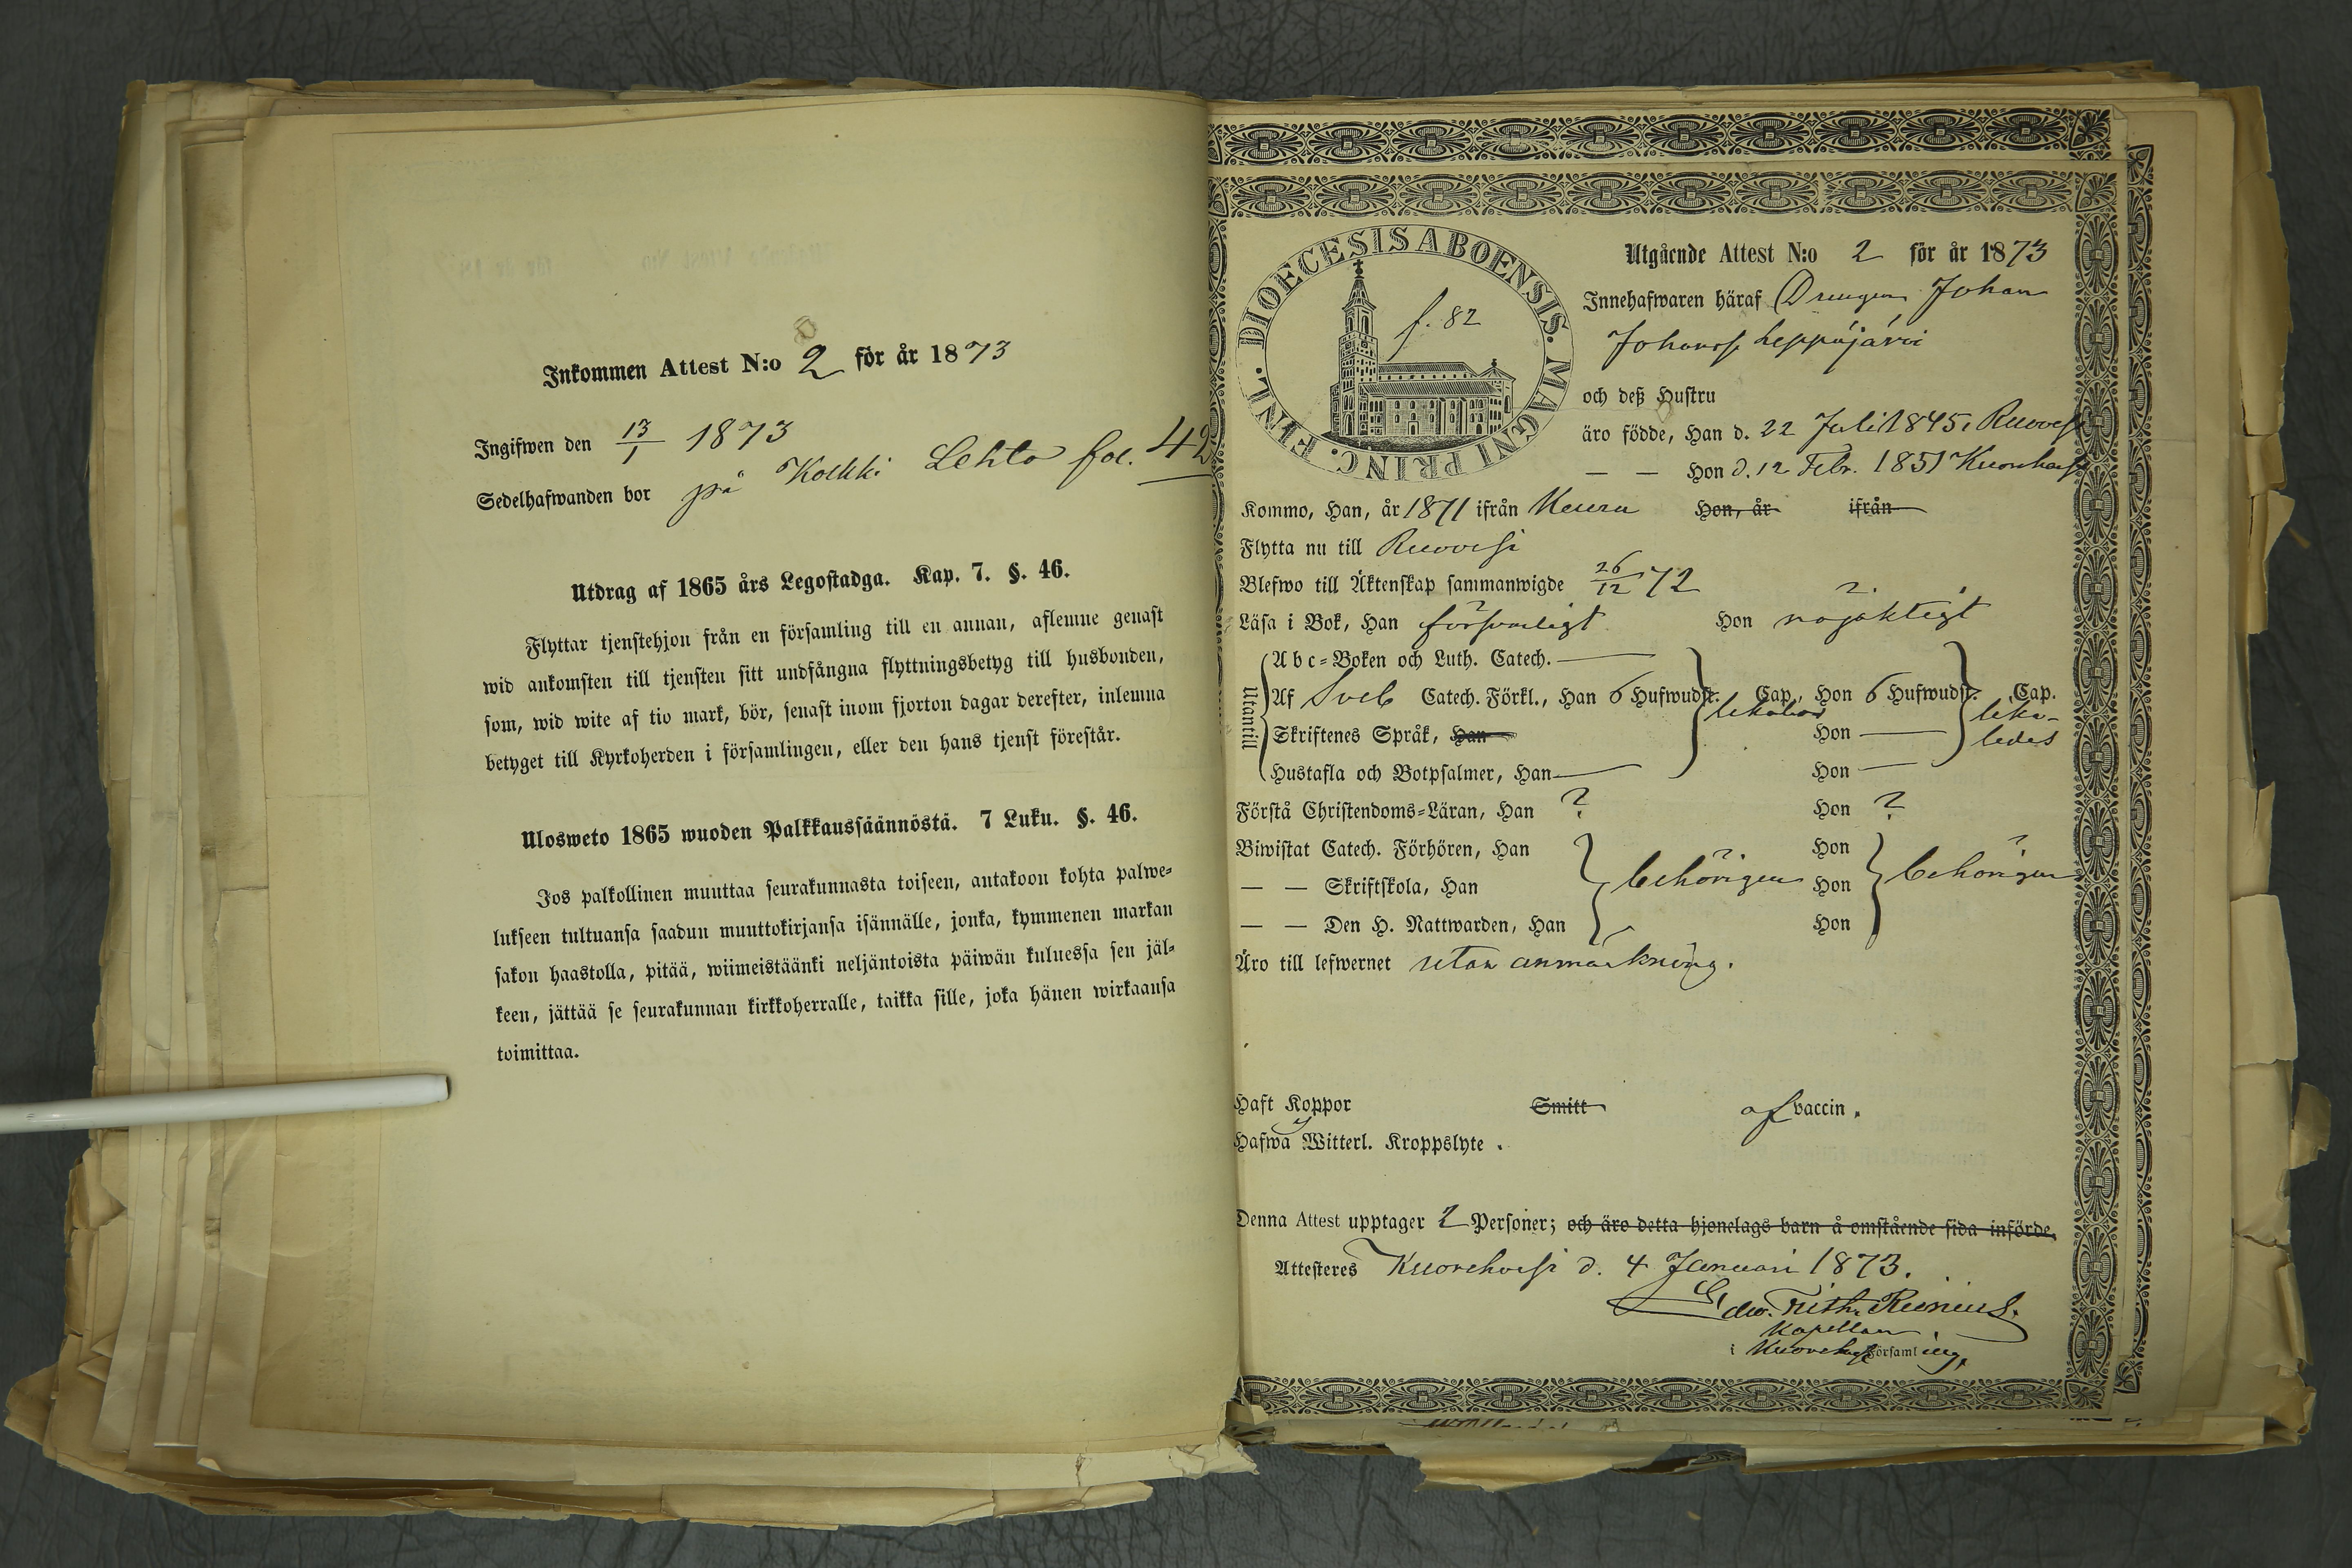 Inkommen Attest N:o 2 för år 1873
Ingifwen den 13/1 1873
Sedelhafwanden bor på Kolkki Lehto fol. 42
Utdrag af 1865 års Legostadga. Kap. 7. §. 46.
Flyttar tjenstehjon från en församling till en annan, aflemne genast
wid ankomsten till tjensten sitt undfångna flyttningsbetyg till husbonden,
som, wid wite af tio mark, bör, senast inom fjorton dagar derefter, inlemna
betyget till Kyrkoherden i församlingen, eller den hans tjenst förestår.
Ulosweto 1865 wuoden Palkkaussäännöstä. 7 Luku. §. 46.
Jos palkollinen muuttaa seurakunnasta toiseen, antakoon kohta palwe-
lukseen tultuansa saadun muuttokirjansa isännälle, jonka, kymmenen markan
sakon haastolla, pitää, wiimeistäänki neljäntoista päiwän kuluessa sen jäl-
keen, jättää se seurakunnan kirkkoherralle, taikka sille, joka hänen wirkaansa
toimittaa.
DIOECESIS ABOENSIS. MAGNI PRINC. FINL.
f. 82
Utgående Attest N:o 2 för år 1873
Innehafwaren häraf Drengen Johan
Johanss. Leppäjärvi
och deß Hustru
äro födde, Han d. 22 Juli 1845, Ruovesi
— — Hon d. 12 Febr. 1851 Kuorehvesi
Kommo, Han, år 1871 ifrån Keuru Hon, år ifrån
Flytta nu till Ruovesi
Blefwo till Äktenskap sammanwigde 26/12 72
Läsa i Bok, Han försvarligt Hon nöjaktigt
Utantill
Abc-Boken och Luth. Catech.
Af Sveb Catech. Förkl., Han 6 Hufwudst. Cap., Hon 6 Hufwudst. Cap.
likaledes
Skriftenes Språk, Han Hon
Hustafla och Botpsalmer, Han Hon
Förstå Christendoms-Läran, Han ? Hon ?
Biwistat Catech. Förhören, Han Hon
— — Skriftskola, Han behörigen Hon behörigen
— — Den H. Nattwarden, Han Hon
Äro till lefwernet utan anmärkning.
Haft Koppor Smitt af vaccin.
Hafwa ej Witterl. Kroppslyte.
Denna Attest upptager 2 Personer; och äro detta hjonelags barn å omstående sida införde.
Attesteres Kuorehvesi d. 4 Januari 1873.
Edw. Frith. Runius.
Kapellan
i Kuorehvesi församling,